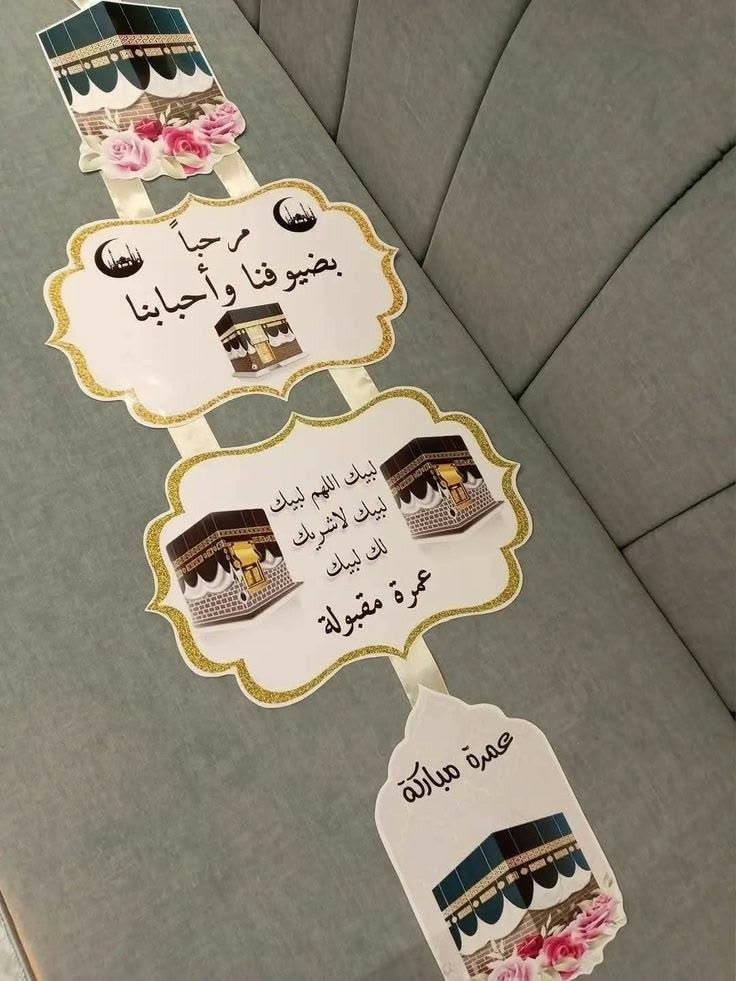 مرحباً
بضيوفنا وأحبابنا
لبيك اللهم لبيك
لبيك لاشريك
لك لبيك
عمرة مقبولة
عمرة مباركة